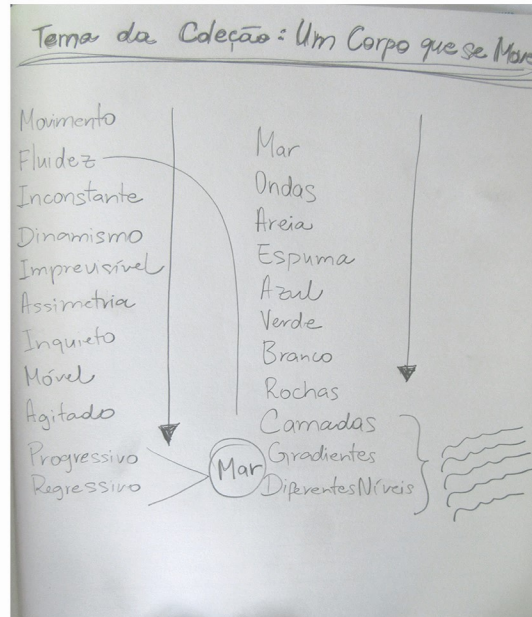 Tema da Coleção: Um Corpo que se Move
Movimento
Fluidez
Inconstante
Dinamismo
Imprevisível
Assimetria
Inquieto
Móvel
Agitado
Progressivo
Regressivo
Mar
Mar
Ondas
Areia
Espuma
Azul
Verde
Branco
Rochas
Camadas
Gradientes
Diferentes Níveis